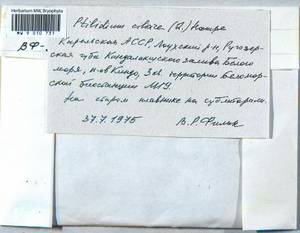 Herbarium MW, Bryophyta
MW 9 010 731
ВФ-
Ptilidium ciliare (L.) Hampe
Карельская АССР, Лоухский р-н, Ругозер-
ская губа Кандалакшского залива Белого
моря, п-ов Киндо, территории Беломор-
ской биостанции МГУ.
На старом плавнике на сублиторали.
37.7.1975 В.Р. Филин